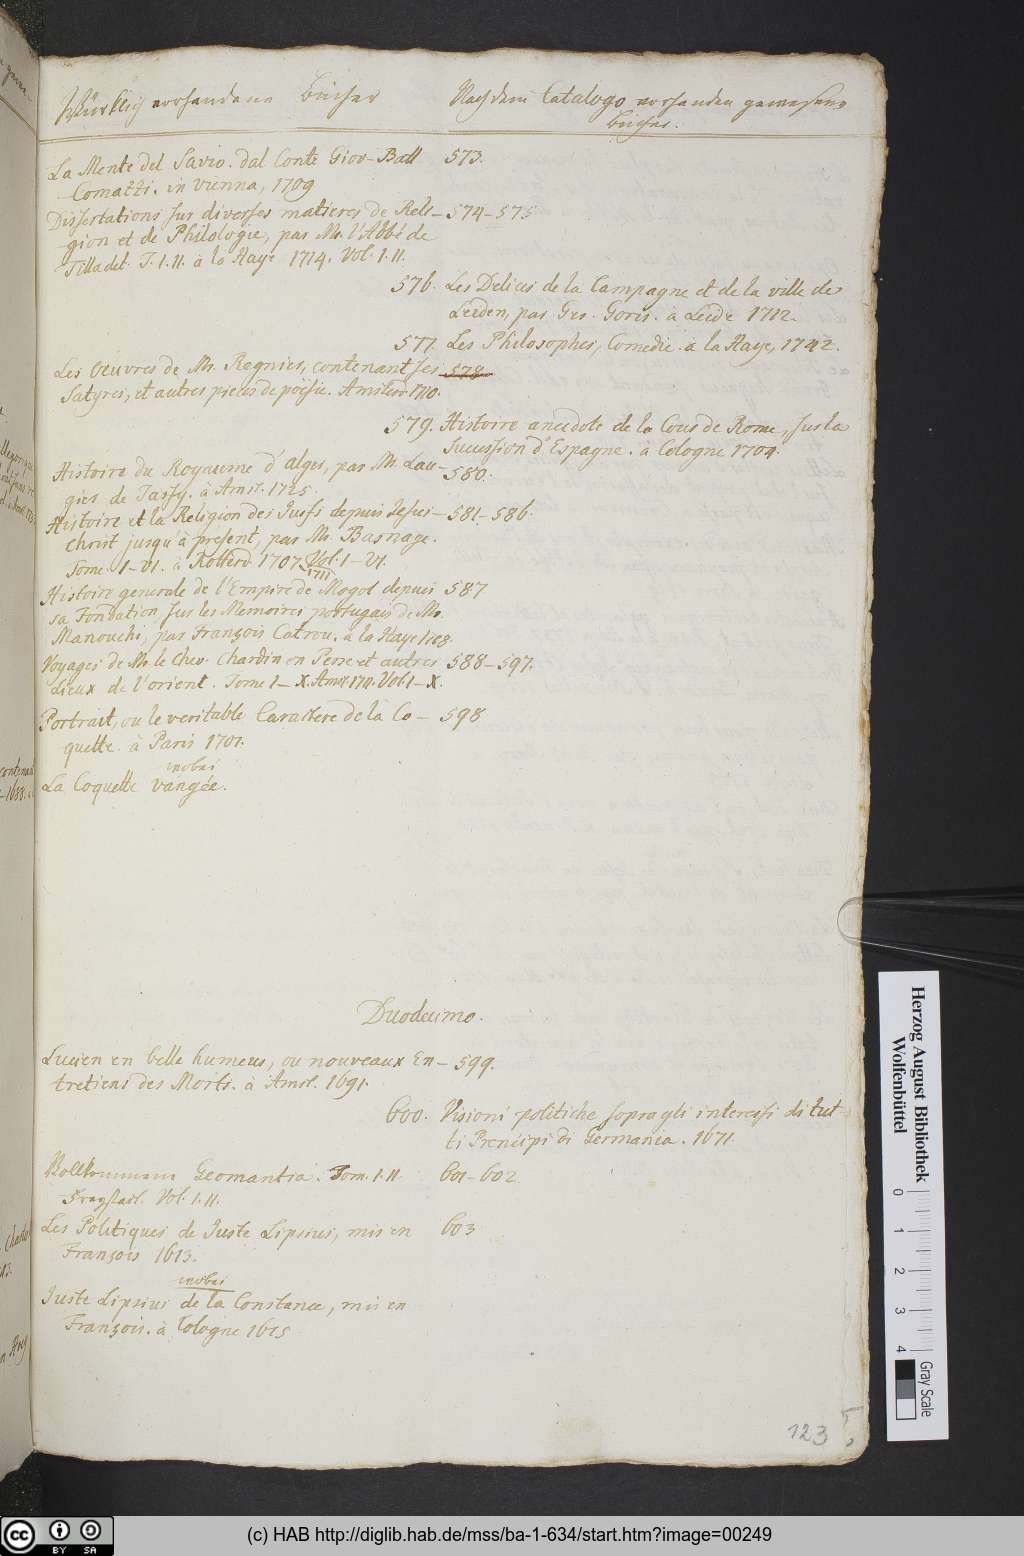 Würklich vorhandene Bücher
Nach dem Catalogo vorhanden gewesene
Bücher.
La Mente del Savio. dal Conte Giov-Batt 573.
Comazzi. in Vienna, 1709
Dissertations sur diverses matieres de Reli- 574-575
gion et de Philologie, par Mr. l'Abbé de
Tilladet. T. I. II. à la Haye 1714. Vol. I. II.
576. Les Delices de la Campagne et de la ville de
Leiden, par Ges. Goris. à Leide 1712.
577. Les Philosophes, Comedie. a la Haye, 1742.
Les Oeuvres de Mr. Regnier, contenant ses 578
Satyres, et autres pieces de pöesie. Amsterd. 1710.
579. Histoire anecdote de la Cour de Rome, sur la
Succession d'Espagne. à Cologne 1704.
Histoire du Royaume d'Alger, par Mr. Lau- 580.
gier de Tassy. à Amst. 1725.
Histoire et la Religion des Juifs depuis Jesus- 581-586.
Christ jusqu'à present, par Mr. Basnage.
Tome I-VI. à Rotterd 1707. Vol. I-VI.
1711
Histoire generale de l'Empire de Mogol depuis 587
sa Fondation, sur les Memoires portugais de Mr.
Manouchi, par François Catrou. à la Haye 1708.
Voyages de Mr. le Chev. Chardin en Perse et autres 588-597.
Lieux de l'orient. Tome I-X. Amst 1711. Vol. I-X.
Portrait, ou le veritable Caractere de la Co- 598
quette. à Paris 1701.
wobei
La Coquette vangée.
Duodecimo.
Lucien en belle humeur, ou nouveaux En- 599.
tretiens des Morts. à Amst. 1691.
600. Visioni politiche sopra gli interessi di tut-
ti Prencipi di Germania. 1671.
Vollkommene Geomantia. Tom. I. II. 601-602.
Freystadt. Vol. I. II.
Les Politiques de Juste Lipsius, mis en 603
François 1613.
wobei
Juste Lipsius de la Constance, mis en
François. à Cologne 1615
123
Herzog August Bibliothek
Wolfenbüttel
0 1 2 3 4
Gray Scale
cc BY SA
(c) HAB http://diglib.hab.de/mss/ba-1-634/start.htm?image=00249